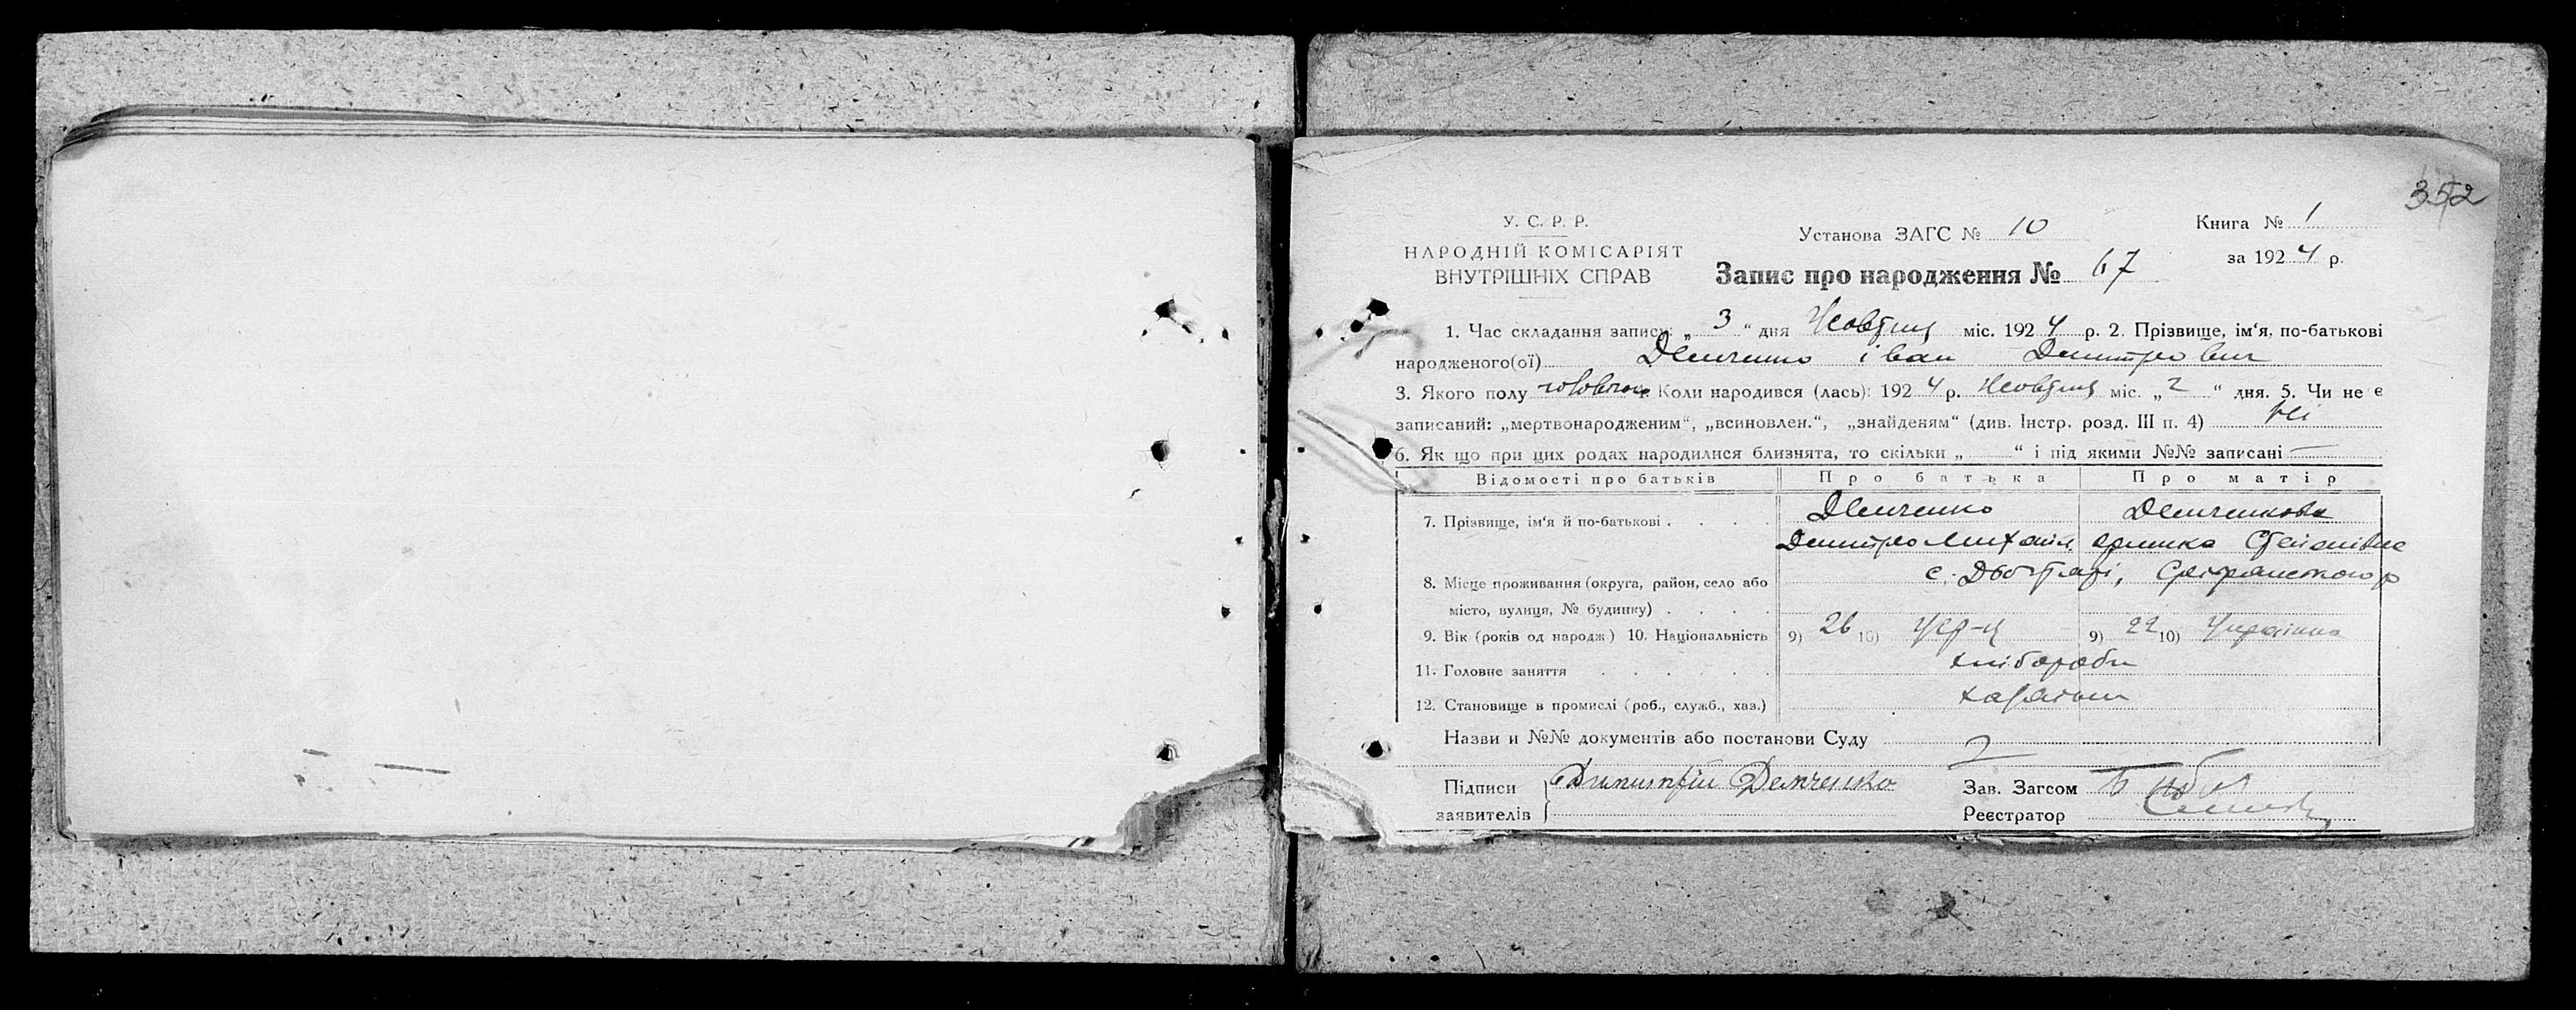 352
У. С. Р. Р.
НАРОДНІЙ КОМІСАРІЯТ
ВНУТРІШНІХ СПРАВ
Установа ЗАГС № 10
Книга № 1
за 1924 р.
Запис про народження № 67
1. Час складання запису: „ 3 “ дня Жовтня міс. 1924 р. 2. Прізвище, ім‘я, по-батькові
народженого(ої) Демченко іван Дмитрович
3. Якого полу чоловічого 4. Коли народився (лась): 1924 р. Жовтня міс. „ 2 “ дня. 5. Чи не є
записаний: „мертвонародженим“, „всиновлен.“, „знайденям“ (див. Інстр. розд. III п. 4) Ні
6. Як що при цих родах народилися близнята, то скільки „ “ і під якими №№ записані —
Відомості про батьків Про батька Про матір
7. Прізвище, ім‘я й по-батькові . . . . Демченко Демченкова
Дмитро Михайл. Степанівна
8. Місце проживання (округа, район, село або с.
місто, вулиця, № будинку) . . . .
9. Вік (років од народж) 10. Національність 9) 26 10) Укр-ц 9) 22 10) Українка
11. Головне заняття . . . . . . хлібороби
12. Становище в промислі (роб., служб., хаз.) хазяїни
Назви и №№ документів або постанови Суду
Підписи Димитрій Демченко Зав. Загсом
заявителів Реєстратор